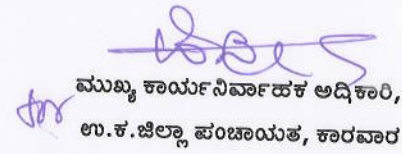 ಮುಖ್ಯ ಕಾರ್ಯನಿರ್ವಾಹಕ ಅಧಿಕಾರಿ,
ಉ.ಕ.ಜಿಲ್ಲಾ ಪಂಚಾಯತ, ಕಾರವಾರ